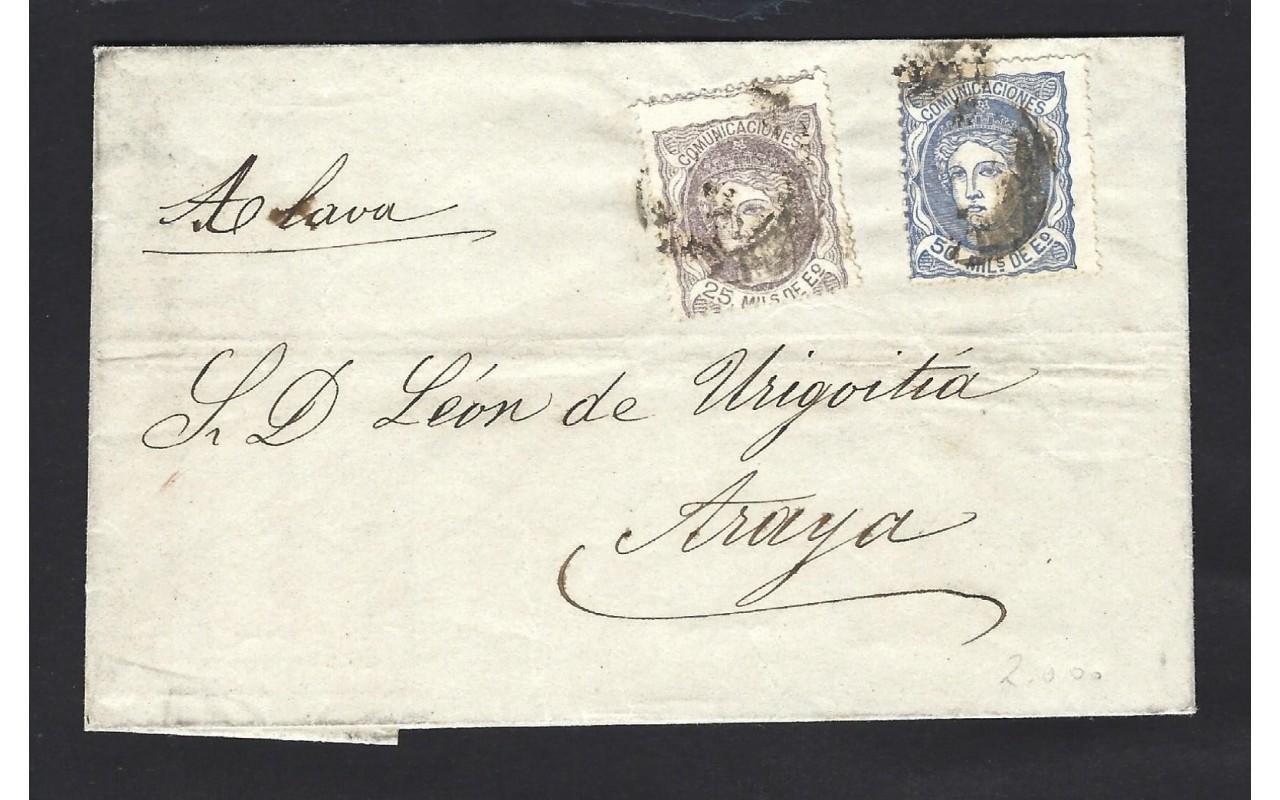 COMUNICACIONES
25 MILS DE Eº
COMUNICACIONES
50 MILS DE Eº
Alava
Sr D León de Urigoitia
Araya
2.000